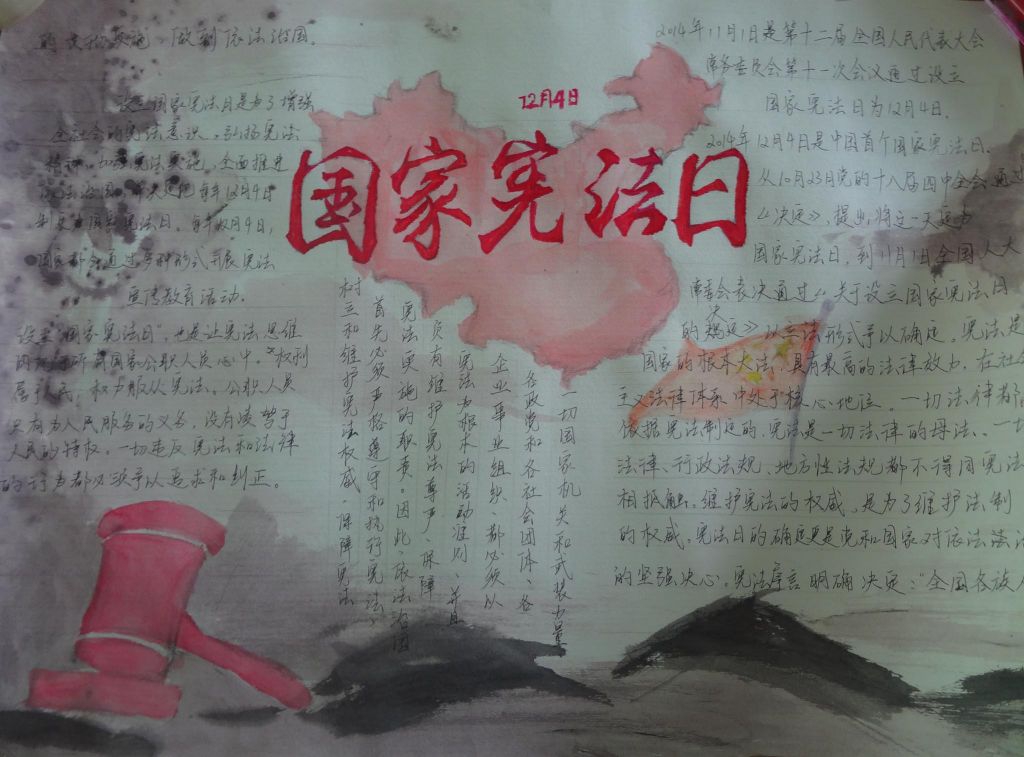 12月4日
国家宪法日
2014年11月1日是第十二届全国人民代表大会
常务委员会第十一次会议通过设立
国家宪法日为12月4日.
2014年12月4日是中国首个国家宪法日.
从10月23月党的十八届四中全会通过
《决定》,提出将这一天定为
国家宪法日,到11月1日全国人大
常委会表决通过《关于设立国家宪法日
的决定》以立法形式予以确定。宪法是
国家的根本大法,具有最高的法律效力,在社会
主义法律体系中处于核心地位。一切法律都
依据宪法制定的,宪法是一切法律的母法、一切
法律、行政法规、地方性法规都不得同宪法
相抵触。维护宪法的权威,是为了维护法制
的权威。宪法日的确定更是党和国家对依法
的坚强决心。宪法序言明确决定:“全国各族人
一切国家机关和武装力量
各政党和各社会团体、各
企业事业组织、都必须以
宪法为根本的活动准则、并且
负有维护宪法尊严、保障
宪法实施的职责。因此,依法治国
首先必须严格遵守和执行宪法、
树立和维护宪法权威,保障宪法
的 实施,做到依法治国.
设立国家宪法日是为了增强
全社会的宪法意识,弘扬宪法
精神,加强宪法实施,全面推进
依法治国 每年12月4日
制 国家宪法日。每年12月4日,
国家都会通过多种形式开展宪法
宣传教育活动.
设立“国家宪法日”,也是让宪法思维
国家公职人员心中。权利
属于人民,权力服从宪法。公职人员
只有为人民服务的义务,没有凌驾于
人民的特权。一切违反宪法和法律
的行为都必须予以追求和纠正。